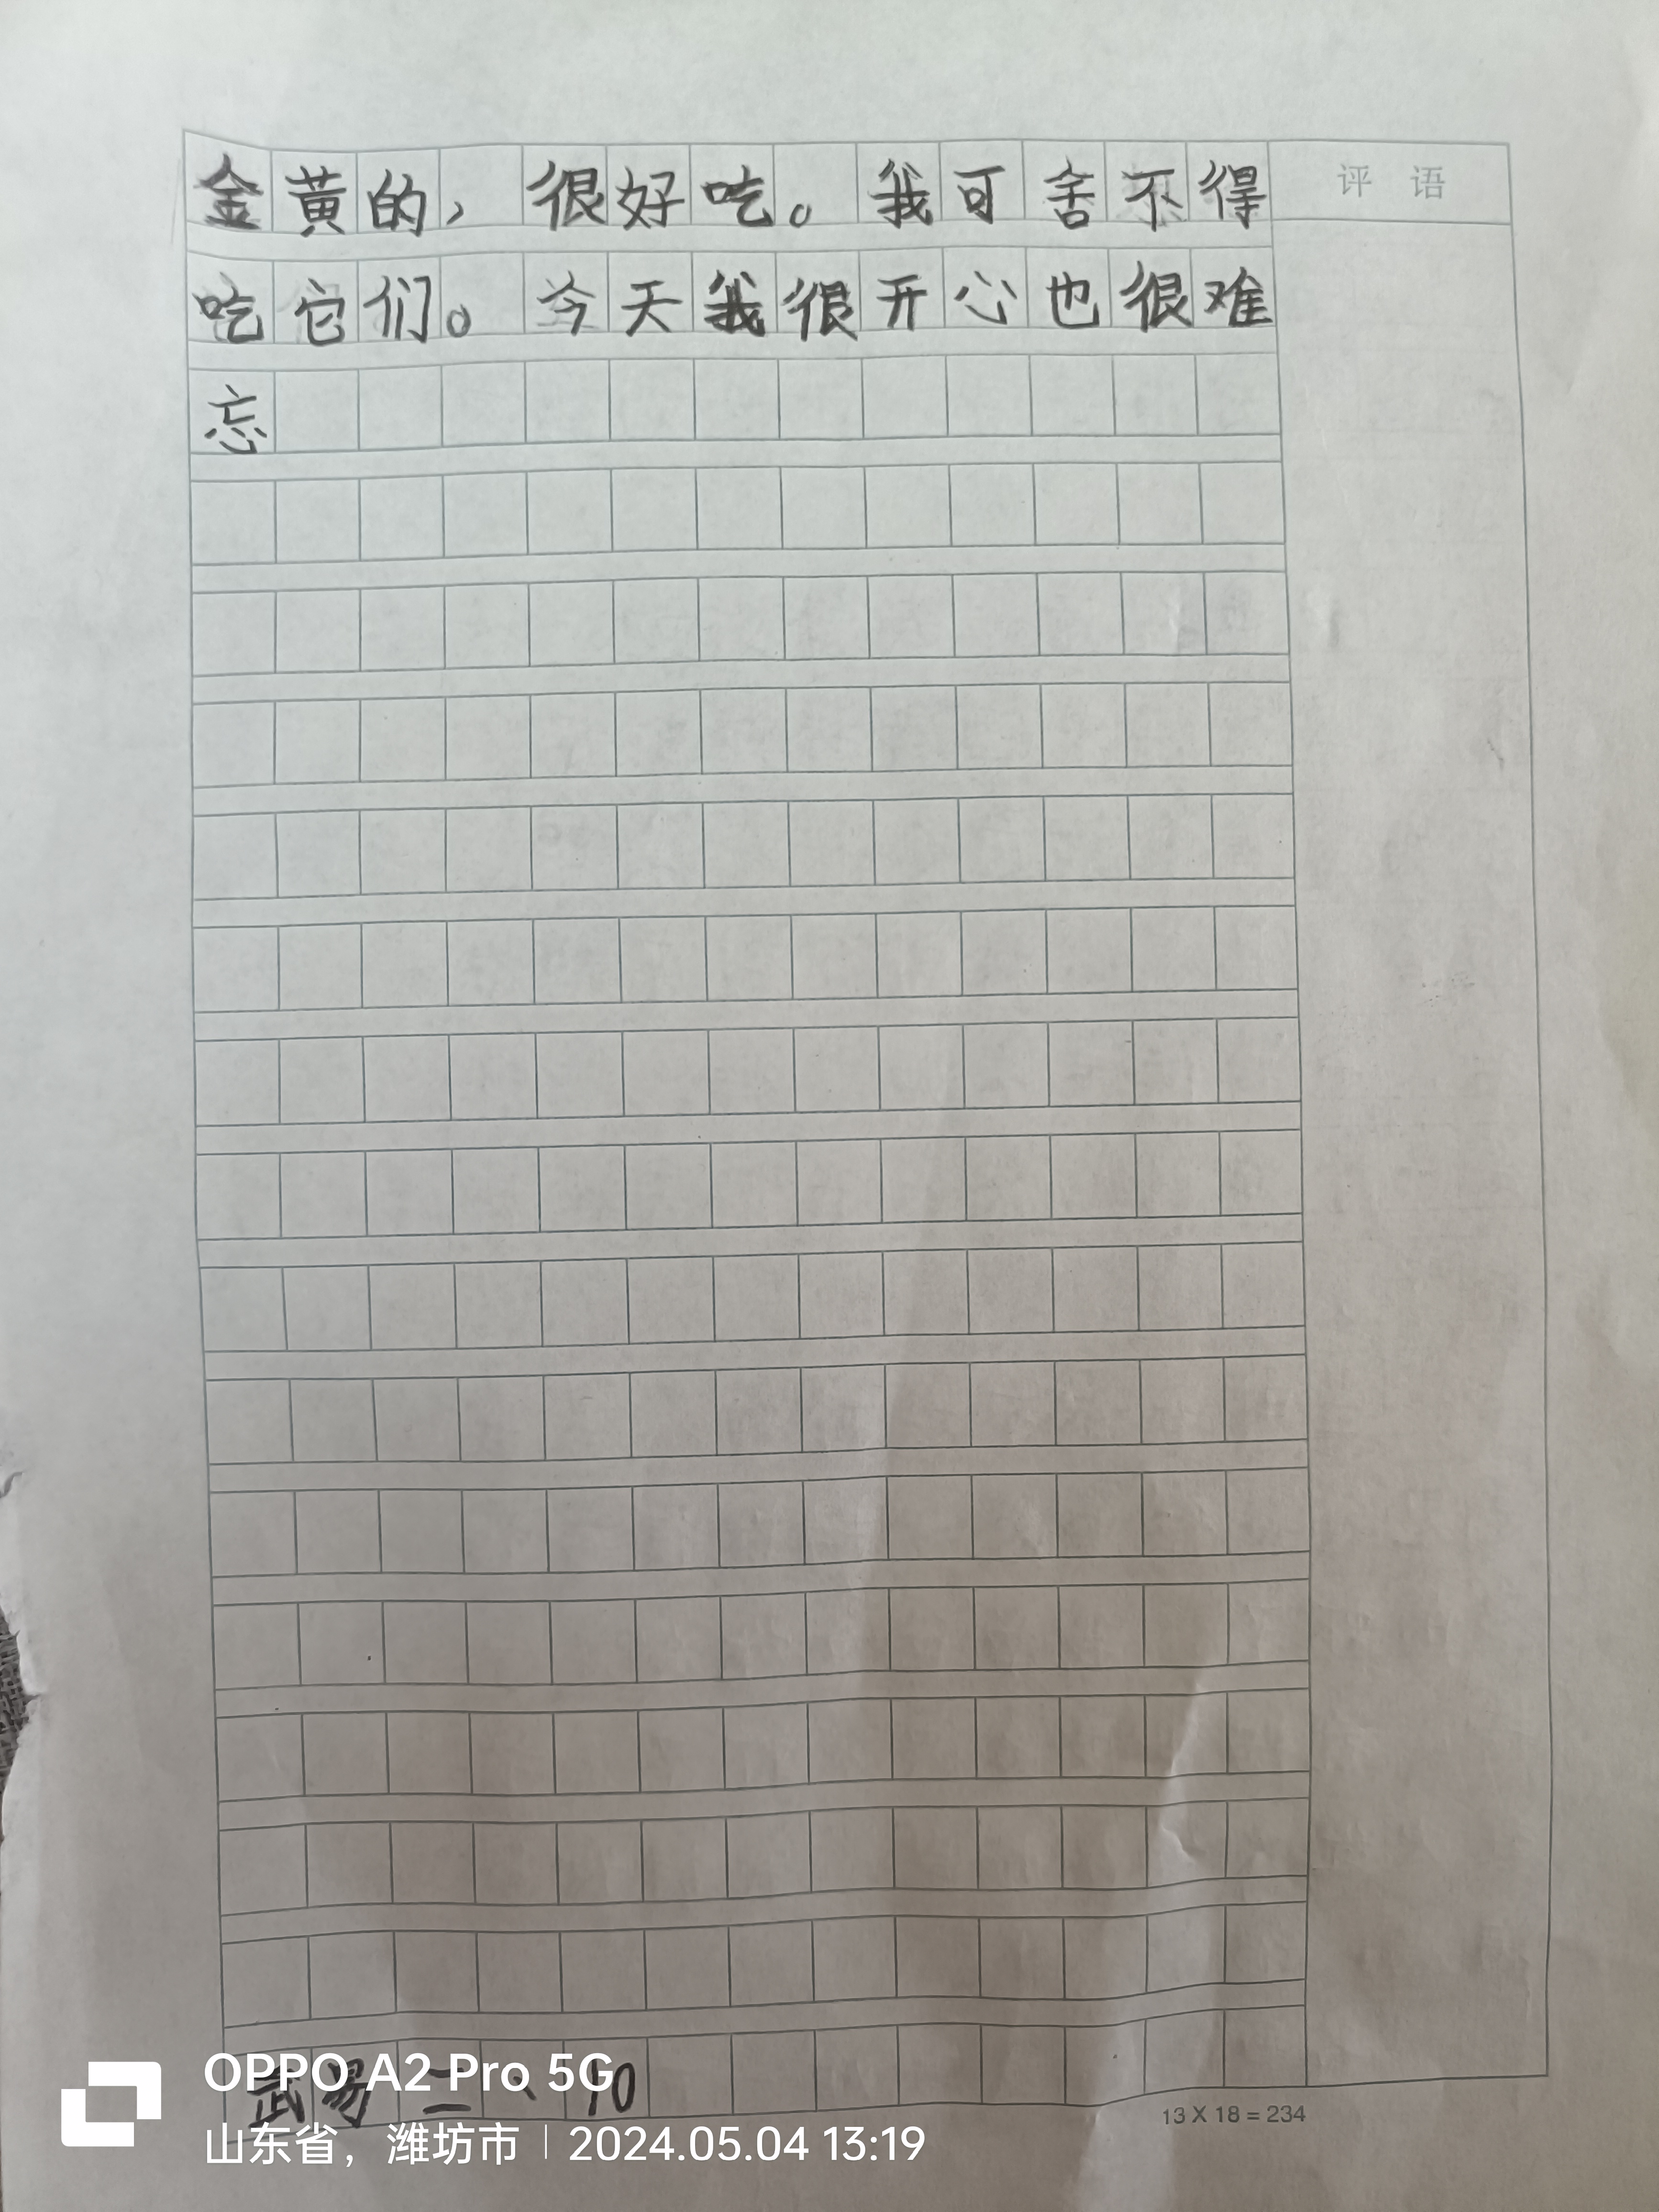 金黄的，很好吃。我可舍不得
评语
吃它们。今天我很开心也很难
忘
武易二、10
13 X 18 = 234
OPPO A2 Pro 5G
山东省，潍坊市 | 2024.05.04 13:19